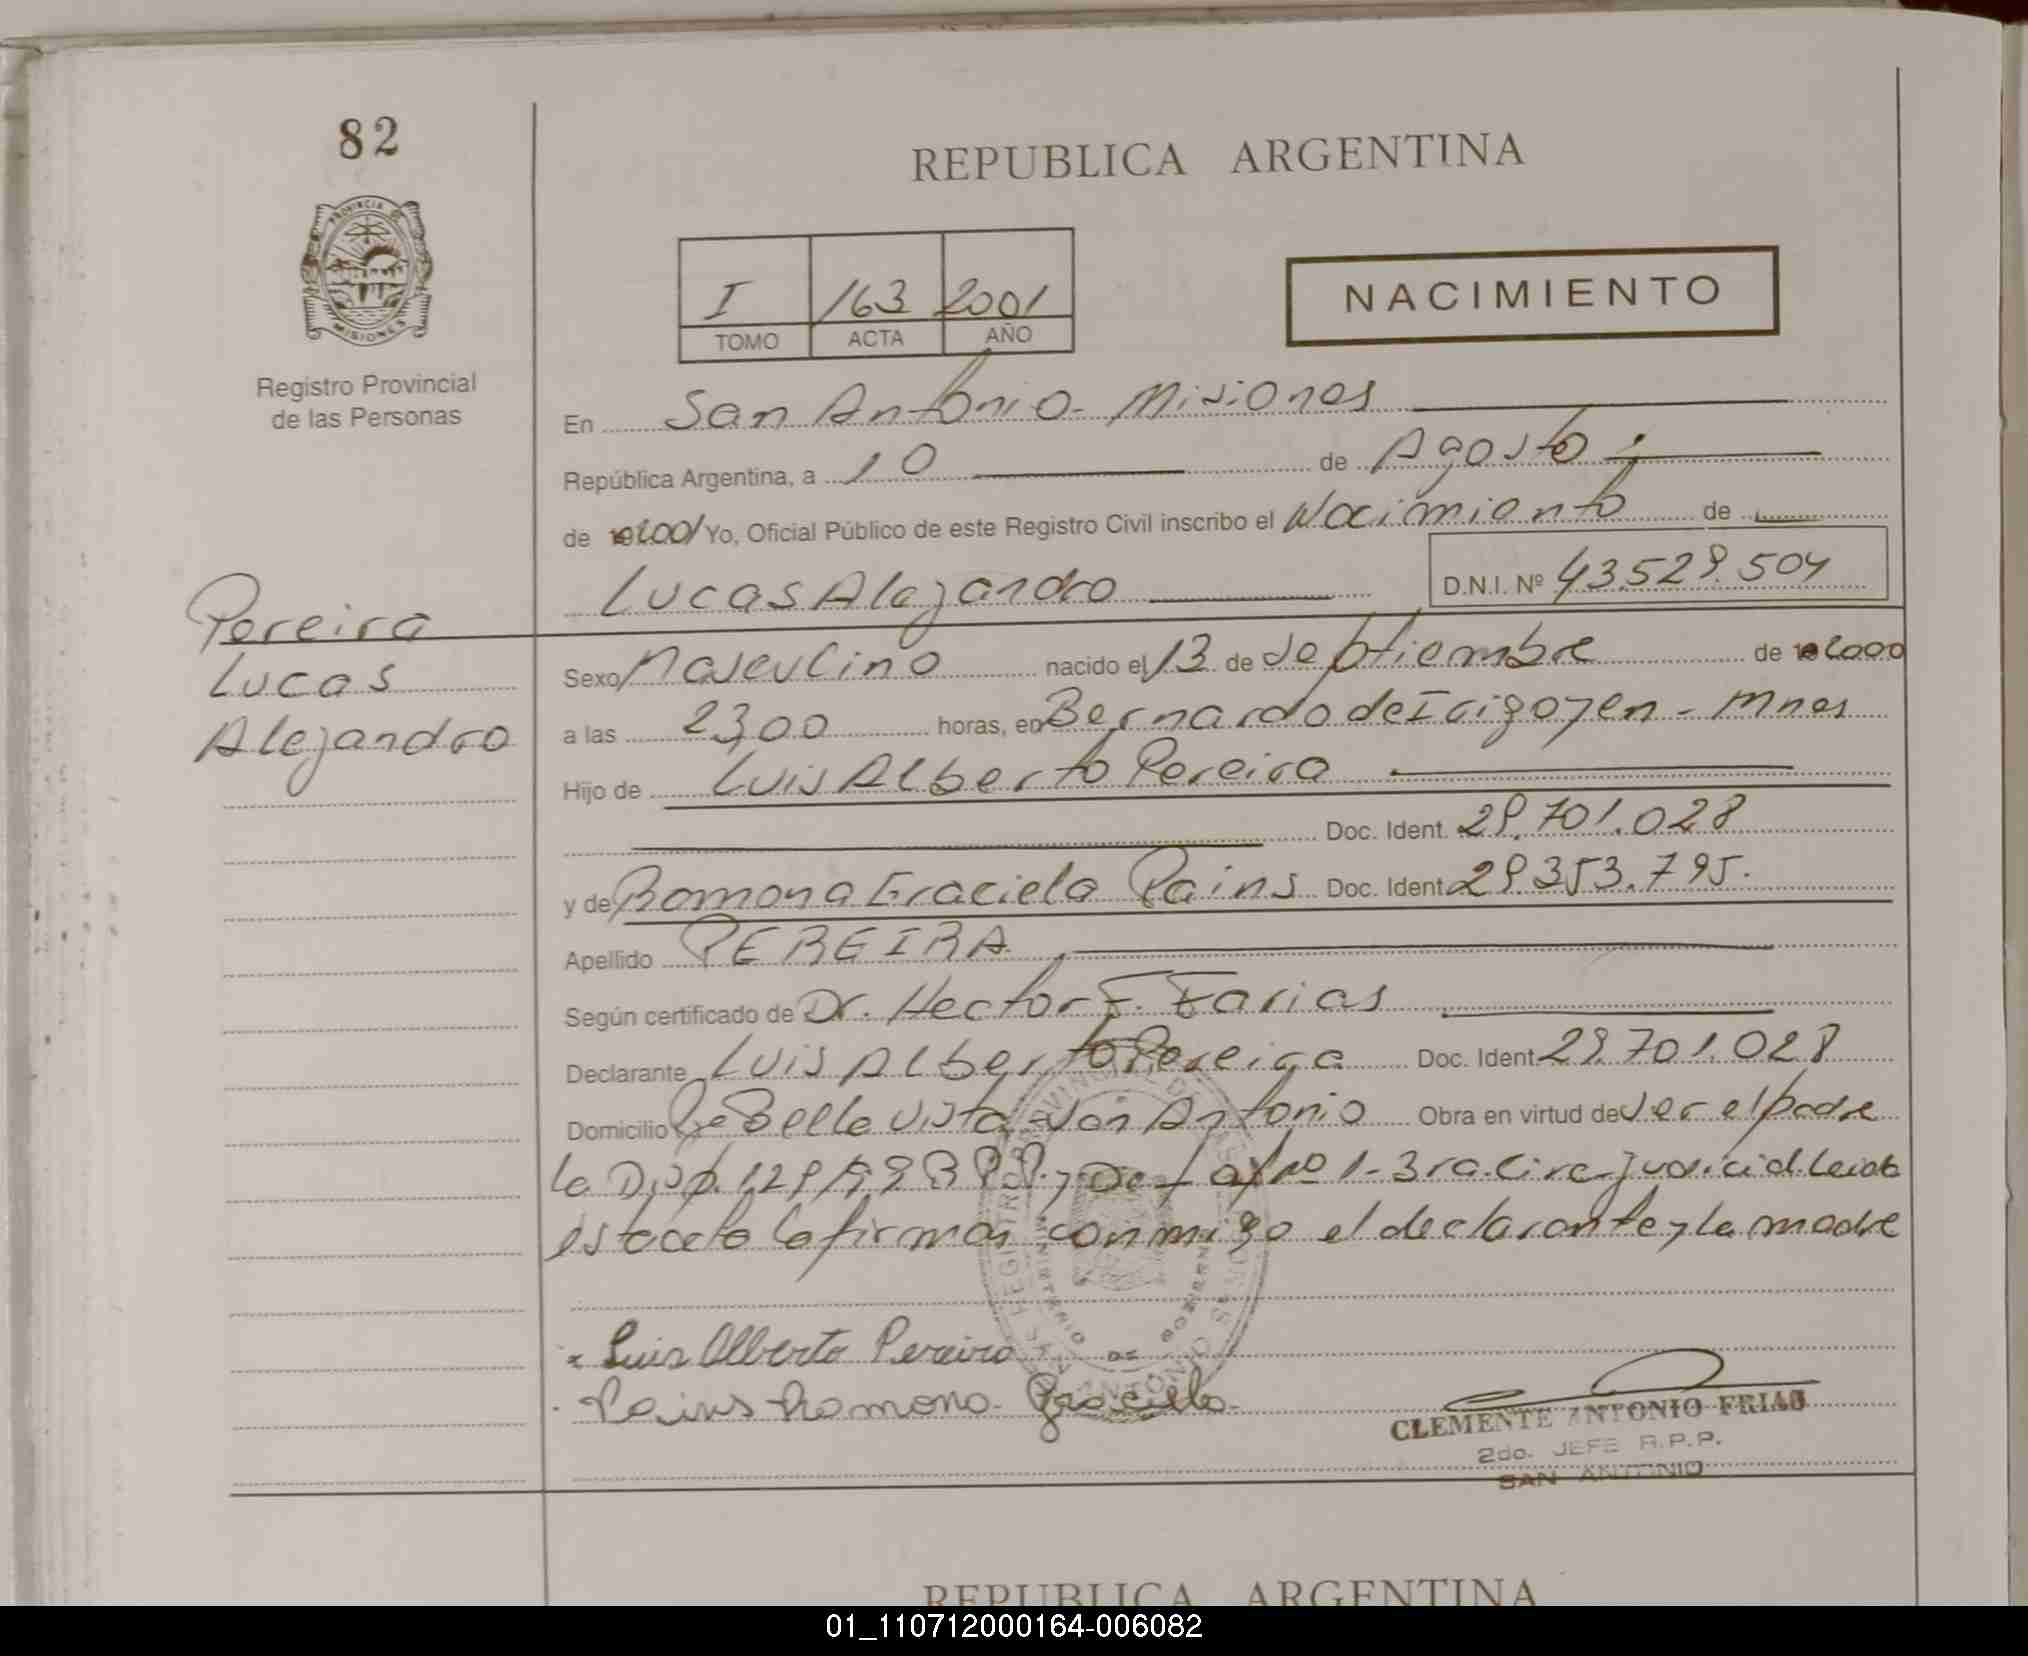 82
REPUBLICA ARGENTINA
PROVINCIA DE
MISIONES
I 163 2001
TOMO ACTA AÑO
NACIMIENTO
Registro Provincial
de las Personas
En San Antonio - Misiones
República Argentina, a 10 de Agosto
de 2001 Yo, Oficial Público de este Registro Civil inscribo el Nacimiento de
Lucas Alejandro D.N.I. Nº 43.529.504
Pereira
Lucas
Alejandro
Sexo Masculino nacido el 13 de Septiembre de 2000
a las 23,00 horas, en Bernardo de Irigoyen - Mnes
Hijo de Luis Alberto Pereira
Doc. Ident. 29.701.028
y de Ramona Graciela Pains Doc. Ident. 29.353.795.
Apellido PEREIRA
Según certificado de Dr. Hector F. Farias
Declarante Luis Alberto Pereira Doc. Ident. 29.701.028
Domicilio Bella Vista - San Antonio Obra en virtud de ser el padre
la Disp. y 1 - 3ra. Circ. Judicial. Leida
esta acta la firman conmigo el declarante y la madre
Luis Alberto Pereira
Pains Ramona Graciela
CLEMENTE ANTONIO FRIAS
2do. JEFE R.P.P.
SAN ANTONIO
REPUBLICA ARGENTINA
01_110712000164-006082